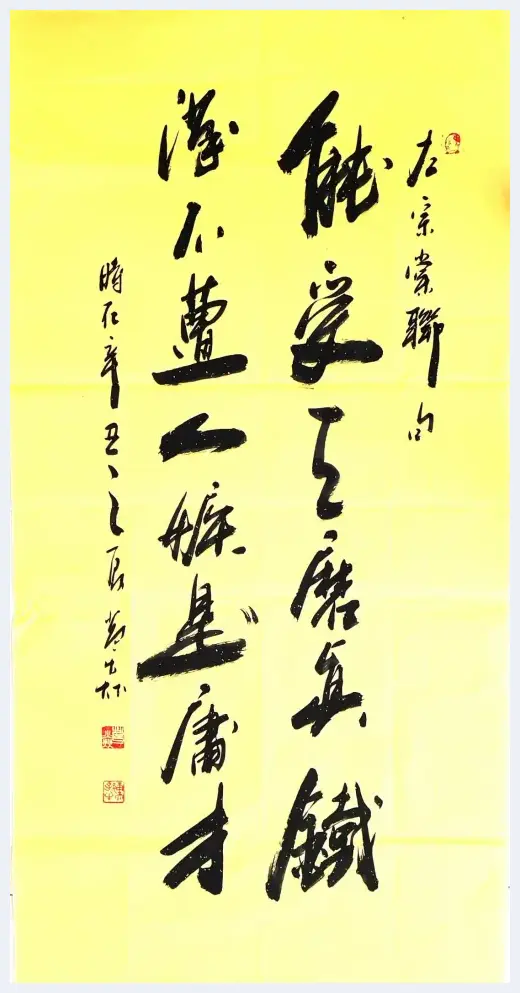 左宗棠聯句
能受天磨真鐵
漢不遭人嫉是庸才
時在辛丑之夏